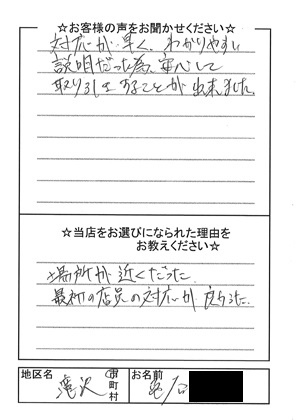 ☆お客様の声をお聞かせください☆
対応が早く、わかりやすい
説明だった為、安心して
取り引きすることが出来ました
☆当店をお選びになられた理由を
お教えください☆
場所が近くだった
最初の店員の対応が良かった.
地区名 滝沢 市町村 お名前